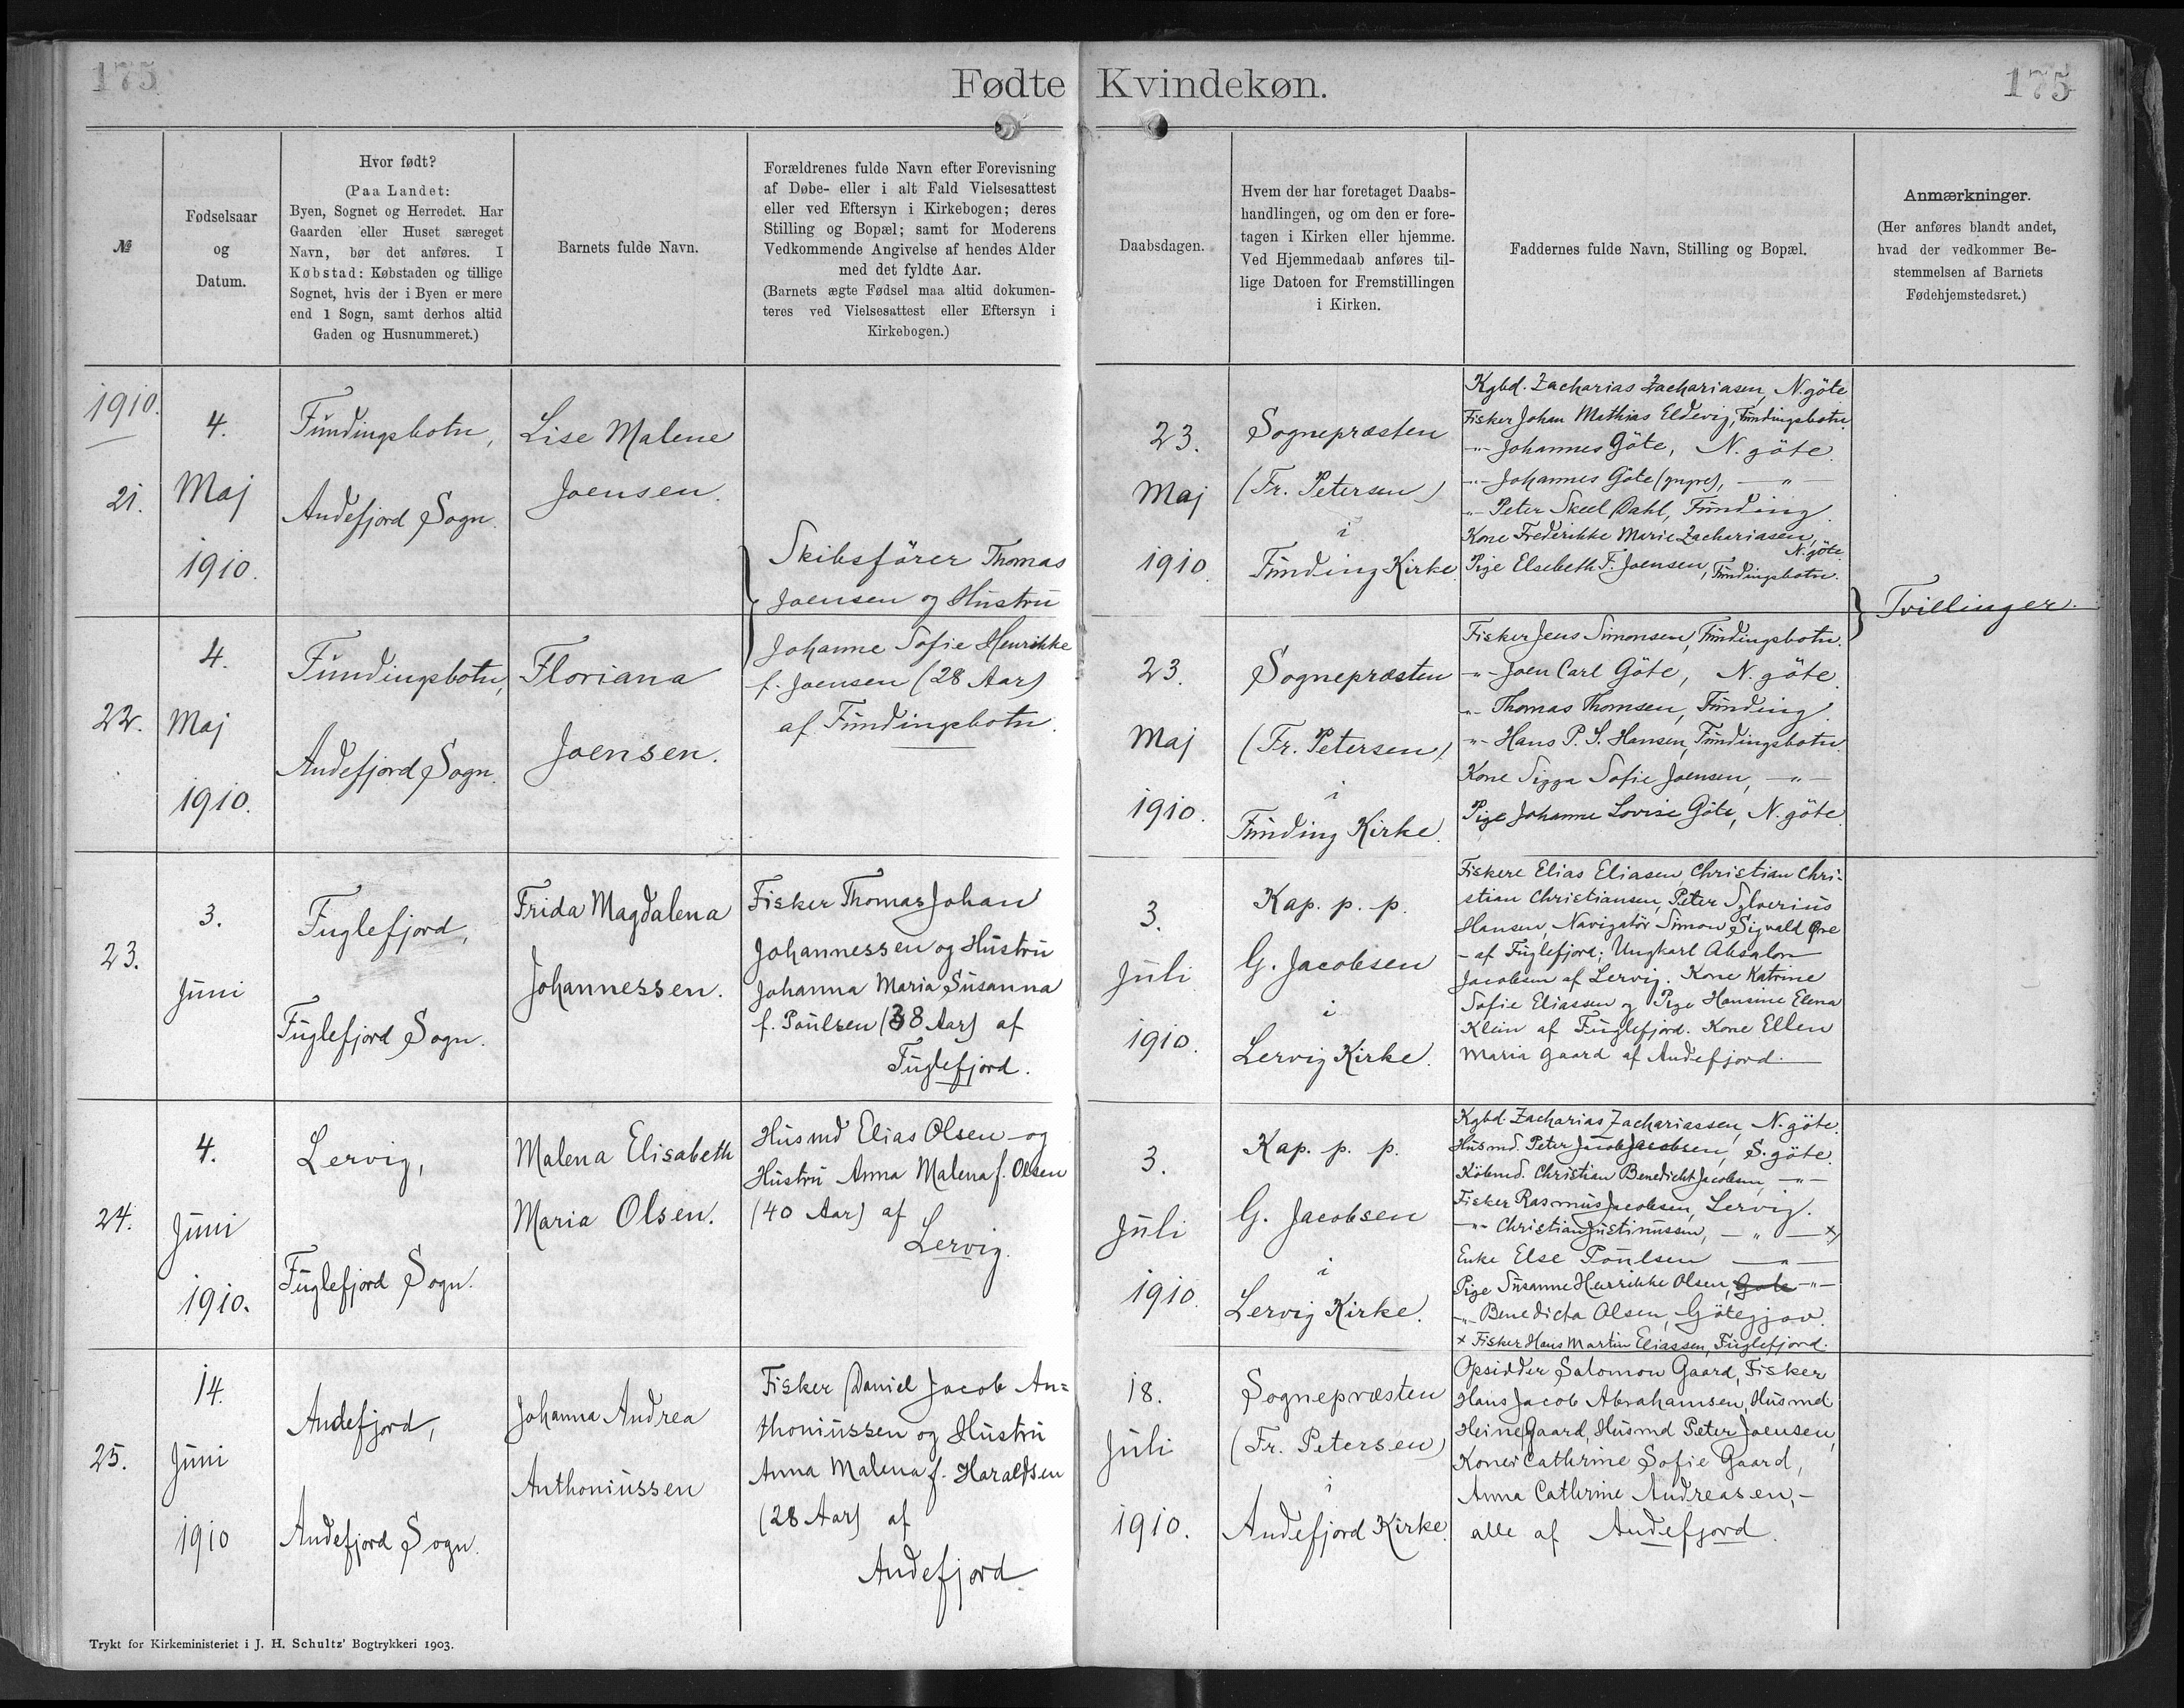 175
Fødte Kvindekøn.
175
№
Fødselsaar
og
Datum.
Hvor født?
(Paa Landet:
Byen, Sognet og Herredet. Har
Gaarden eller Huset særeget
Navn, bør det anføres. I
Købstad: Købstaden og tillige
Sognet, hvis der i Byen er mere
end 1 Sogn, samt derhos altid
Gaden og Husnummeret.)
Barnets fulde Navn.
Forældrenes fulde Navn efter Forevisning
af Døbe- eller i alt Fald Vielsesattest
eller ved Eftersyn i Kirkebogen; deres
Stilling og Bopæl; samt for Moderens
Vedkommende Angivelse af hendes Alder
med det fyldte Aar.
(Barnets ægte Fødsel maa altid dokumen-
teres ved Vielsesattest eller Eftersyn i
Kirkebogen.)
Daabsdagen.
Hvem der har foretaget Daabs-
handlingen, og om den er fore-
tagen i Kirken eller hjemme.
Ved Hjemmedaab anføres til-
lige Datoen for Fremstillingen
i Kirken.
Faddernes fulde Navn, Stilling og Bopæl.
Anmærkninger.
(Her anføres blandt andet,
hvad der vedkommer Be-
stemmelsen af Barnets
Fødehjemstedsret.)
1910.
21.
4.
Maj
1910.
Fundingsbotn,
Andefjord Sogn.
Lise Malene
Joensen.
Skibsfører Thomas
Joensen og Hustru
Johanne Sofie Henrikke
f. Joensen (28 Aar)
af Fundingsbotn.
23.
Maj
1910.
Sognepræsten
(Fr. Petersen)
i
Funding Kirke
Kgbd. Zacharias Zachariasen, N. göte
Fisker Johan Mathias Eldevig, Fundingsbotn.
-"- Johannes Göte, N. göte.
-"- Johannes Göte (yngre), -"-
-"- Peter Skeel Dahl, Funding.
Kone Frederikke Marie Zachariasen,
N. göte
Pige Elsebeth F. Joensen, Fundingsbotn.
Tvillinger.
22.
4.
Maj
1910.
Fundingsbotn,
Andefjord Sogn.
Floriana
Joensen.
23.
Maj
1910.
Sognepræsten
(Fr. Petersen)
i
Funding Kirke.
Fisker Jens Simonsen, Fundingsbotn.
-"- Joen Carl Göte, N. göte.
-"- Thomas Thomsen, Funding.
-"- Hans P. S. Hansen, Fundingsbotn.
Kone Sigga Sofie Joensen, -"-
Pige Johanne Lovise Göte, N. göte.
23.
3.
Juni
Fuglefjord,
Fuglefjord Sogn.
Frida Magdalena
Johannessen.
Fisker Thomas Johan
Johannessen og Hustru
Johanna Maria Susanna
f. Poulsen (38 Aar) af
Fuglefjord.
3.
Juli
1910.
Kap. p. p.
G. Jacobsen
i
Lervig Kirke.
Fiskere Elias Eliasen, Christian Chri-
stian Christiansen, Peter Sylverius
Hansen, Navigatör Simon Sigvald Øre
- af Fuglefjord; Ungkarl Absalon
Jacobsen af Lervig. Kone Katrine
Sofie Eliassen og Pige Hansine Elena
Klein af Fuglefjord. Kone Ellen
Maria Gaard af Andefjord.
24.
4.
Juni
1910.
Lervig,
Fuglefjord Sogn.
Malena Elisabeth
Maria Olsen.
Husmd Elias Olsen og
Hustru Anna Malena f. Olsen
(40 Aar) af
Lervig.
3.
Juli
1910.
Kap. p. p.
G. Jacobsen
i
Lervig Kirke.
Kgbd. Zacharias Zachariassen, N. göte.
Husmd. Peter Jacob Jacobsen, S. göte.
Köbmd. Christian Benedicht Jacobsen, -"-
Fisker Rasmus Jacobsen, Lervig.
-"- Christian Justinussen, -"- x)
Enke Else Poulsen -"-
Pige Susanne Henrikke Olsen, Gote -"-
-"- Benedicta Olsen, Götegjov.
x Fisker Hans Martin Eliassen, Fuglefjord.
25.
14.
Juni
1910
Andefjord,
Andefjord Sogn.
Johanna Andrea
Anthoniussen
Fisker Daniel Jacob An=
thoniussen og Hustru
Anna Malena f. Haraldsen
(28 Aar) af
Andefjord.
18.
Juli
1910.
Sognepræsten
(Fr. Petersen)
i
Andefjord Kirke.
Opsidder Salomon Gaard, Fisker
Hans Jacob Abrahamsen, Husmd
Heine Gaard, Husmd Peter Joensen,
Koner Cathrine Sofie Gaard,
Anna Cathrine Andreasen, -
alle af Andefjord.
Trykt for Kirkeministeriet i J. H. Schultz' Bogtrykkeri 1903.